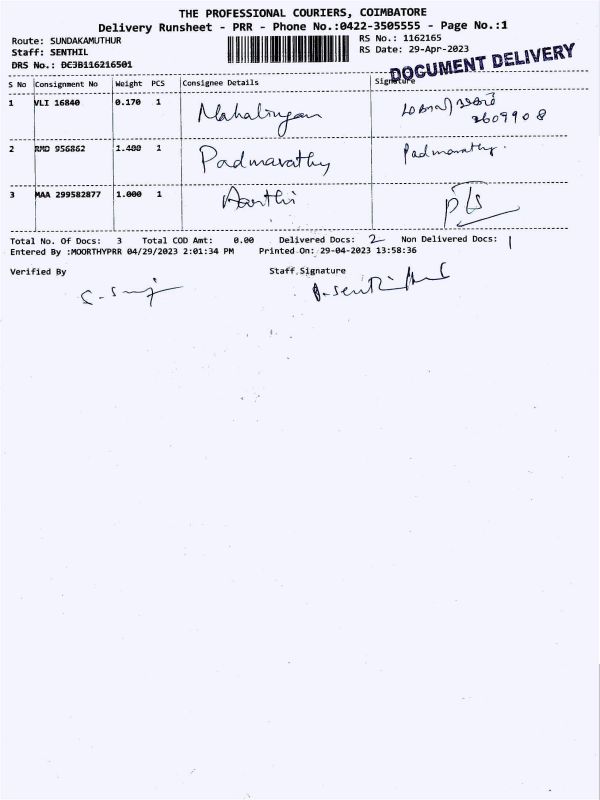 THE PROFESSIONAL COURIERS, COIMBATORE
Delivery Runsheet - PRR - Phone No.:0422-3505555 - Page No.:1
Route: SUNDAKAMUTHUR RS No.: 1162165
Staff: SENTHIL RS Date: 29-Apr-2023
DRS No.: DE3B116216501
DOCUMENT DELIVERY
S No Consignment No Weight PCS Consignee Details Signature
1 VLI 16840 0.170 1 Mahalingam
2609908
2 RMD 956862 1.480 1 Padmavathy Padmavathy.
3 MAA 299582877 1.000 1 Aarthi
Total No. Of Docs: 3 Total COD Amt: 0.00 Delivered Docs: 2 Non Delivered Docs: 1
Entered By :MOORTHYPRR 04/29/2023 2:01:34 PM Printed On: 29-04-2023 13:58:36
Verified By Staff Signature